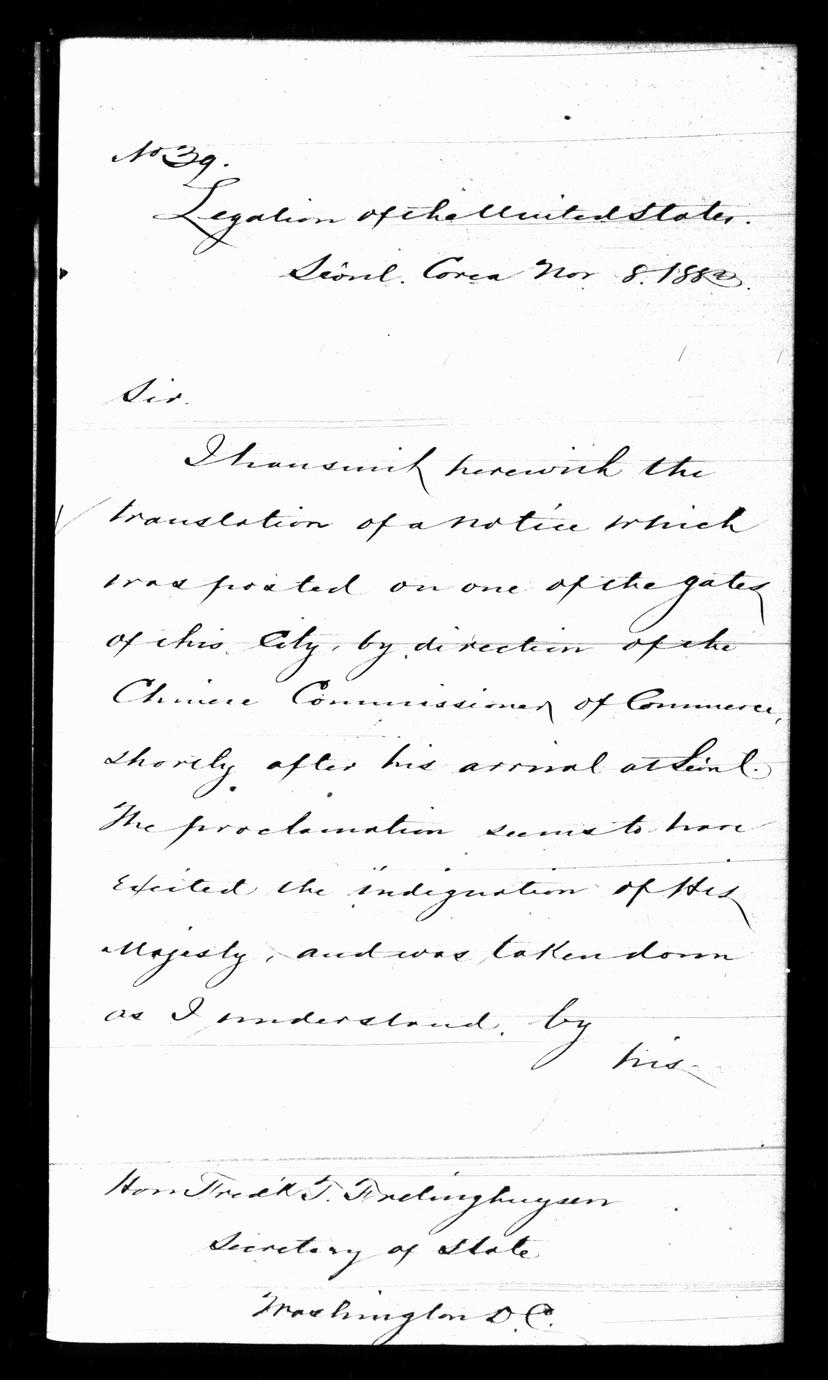 No 39.
Legation of the United States.
Séoul. Corea Nov 8. 1883.
Sir.
I transmit herewith the
translation of a notice which
was posted on one of the gates
of this City, by direction of the
Chinese Commissioner of Commerce,
shortly after his arrival at Séoul.
The proclamation seems to have
excited the indignation of His
Majesty, and was taken down
as I understand, by
his
Hon Fredk T. Frelinghuysen
Secretary of State
Washington D.C.